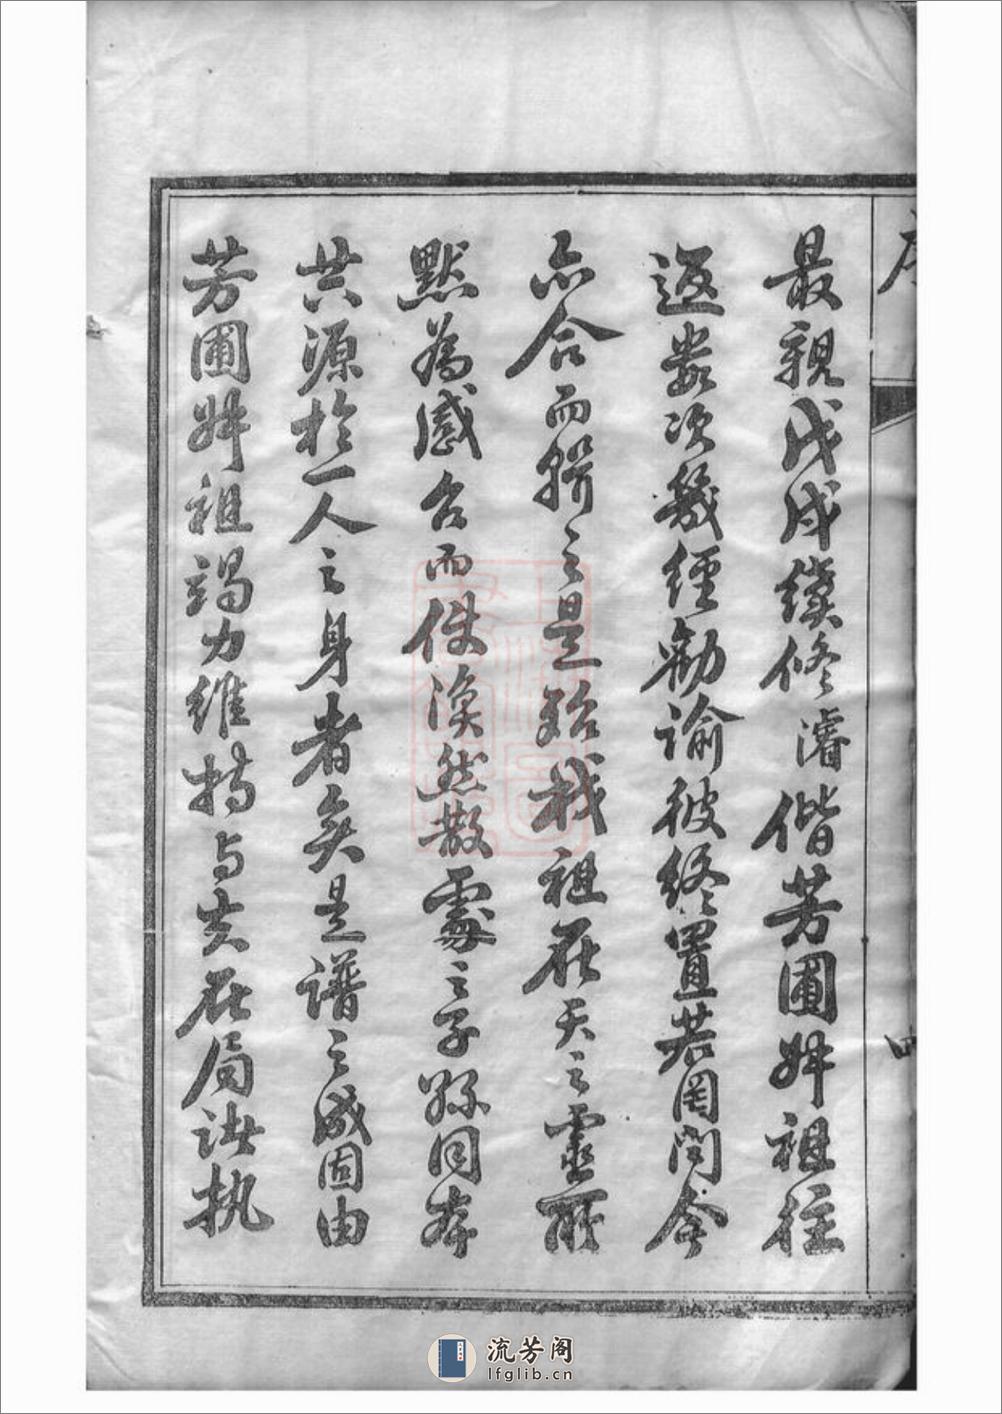 序
四
最親戊戌續修濬偕芳圃叔祖往
返數次幾經勸諭彼終置若罔聞今
亦合而輯之是殆我祖在天之靈所
默為感召而使渙然散處之子孫同本
共源於一人之身者矣是譜之成固由
芳圃叔祖竭力維持与夫在局諸執
流芳阁
lfglib.cn